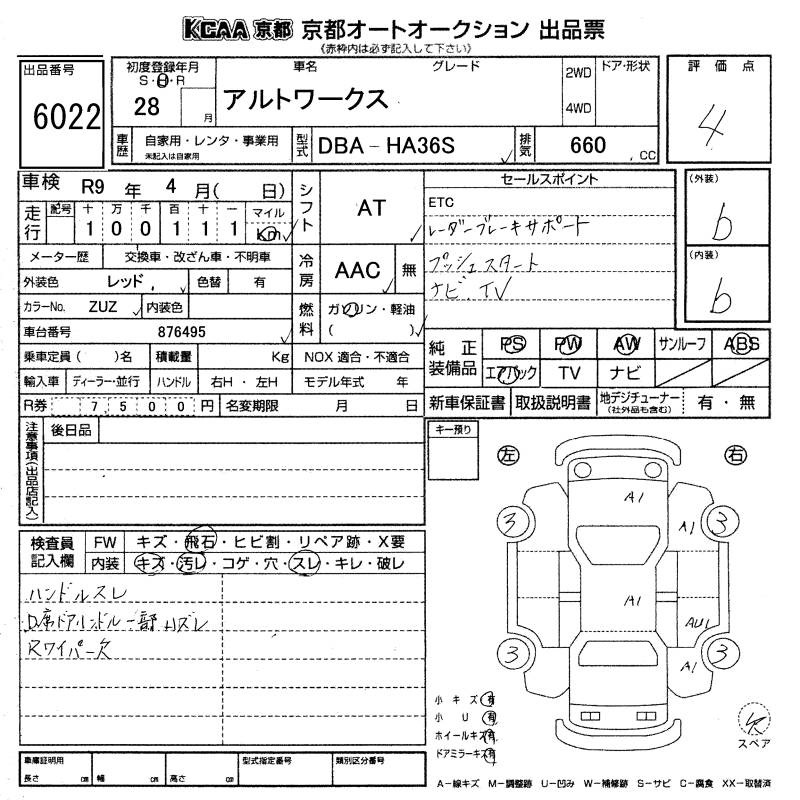 KCAA 京都 京都オートオークション 出品票
《赤枠内は必ず記入して下さい》
出品番号
6022
初度登録年月
S・H・R
28 月
車名 グレード
アルトワークス
2WD
4WD
ドア・形状
評価点
4
車歴
自家用・レンタ・事業用
未記入は自家用
型式
DBA-HA36S
排気
660 .CC
車検 R9 年 4 月( 日)
走行
記号 十 万 千 百 十 一 マイル
1 0 0 1 1 1 Km
メーター歴 交換車・改ざん車・不明車
外装色 レッド 色替 有
カラーNo. ZUZ 内装色
車台番号 876495
乗車定員( )名 積載量 Kg
輸入車 ディーラー・並行 ハンドル 右H・左H
R券 7500円 名変期限 月 日
シフト AT
冷房 AAC 無
燃料 ガソリン・軽油
( )
NOX 適合・不適合
モデル年式 年
セールスポイント
ETC
レーダーブレーキサポート
プッシュスタート
ナビ、TV
(外装)
b
(内装)
b
純正装備品
PS PW AW サンルーフ ABS
エアバック TV ナビ
新車保証書 取扱説明書 地デジチューナー
(社外品も含む)
有・無
注意事項(出品店記入)
後日品
キー預り
左 右
検査員記入欄
FW キズ・飛石・ヒビ割・リペア跡・X要
内装 キズ・汚レ・コゲ・穴・スレ・キレ・破レ
ハンドルスレ
D席ドアハンドル一部ハズレ
Rワイパー欠
A1
3 A1 3
A1
AU1
3 A1 3
小キズ 有
小U 有
ホイールキズ 有
ドアミラーキズ 有
スペア
車庫証明用
長さ cm 幅 cm 高さ cm
型式指定番号 類別区分番号
A-線キズ M-調整跡 U-凹み W-補修跡 S-サビ C-腐食 XX-取替済